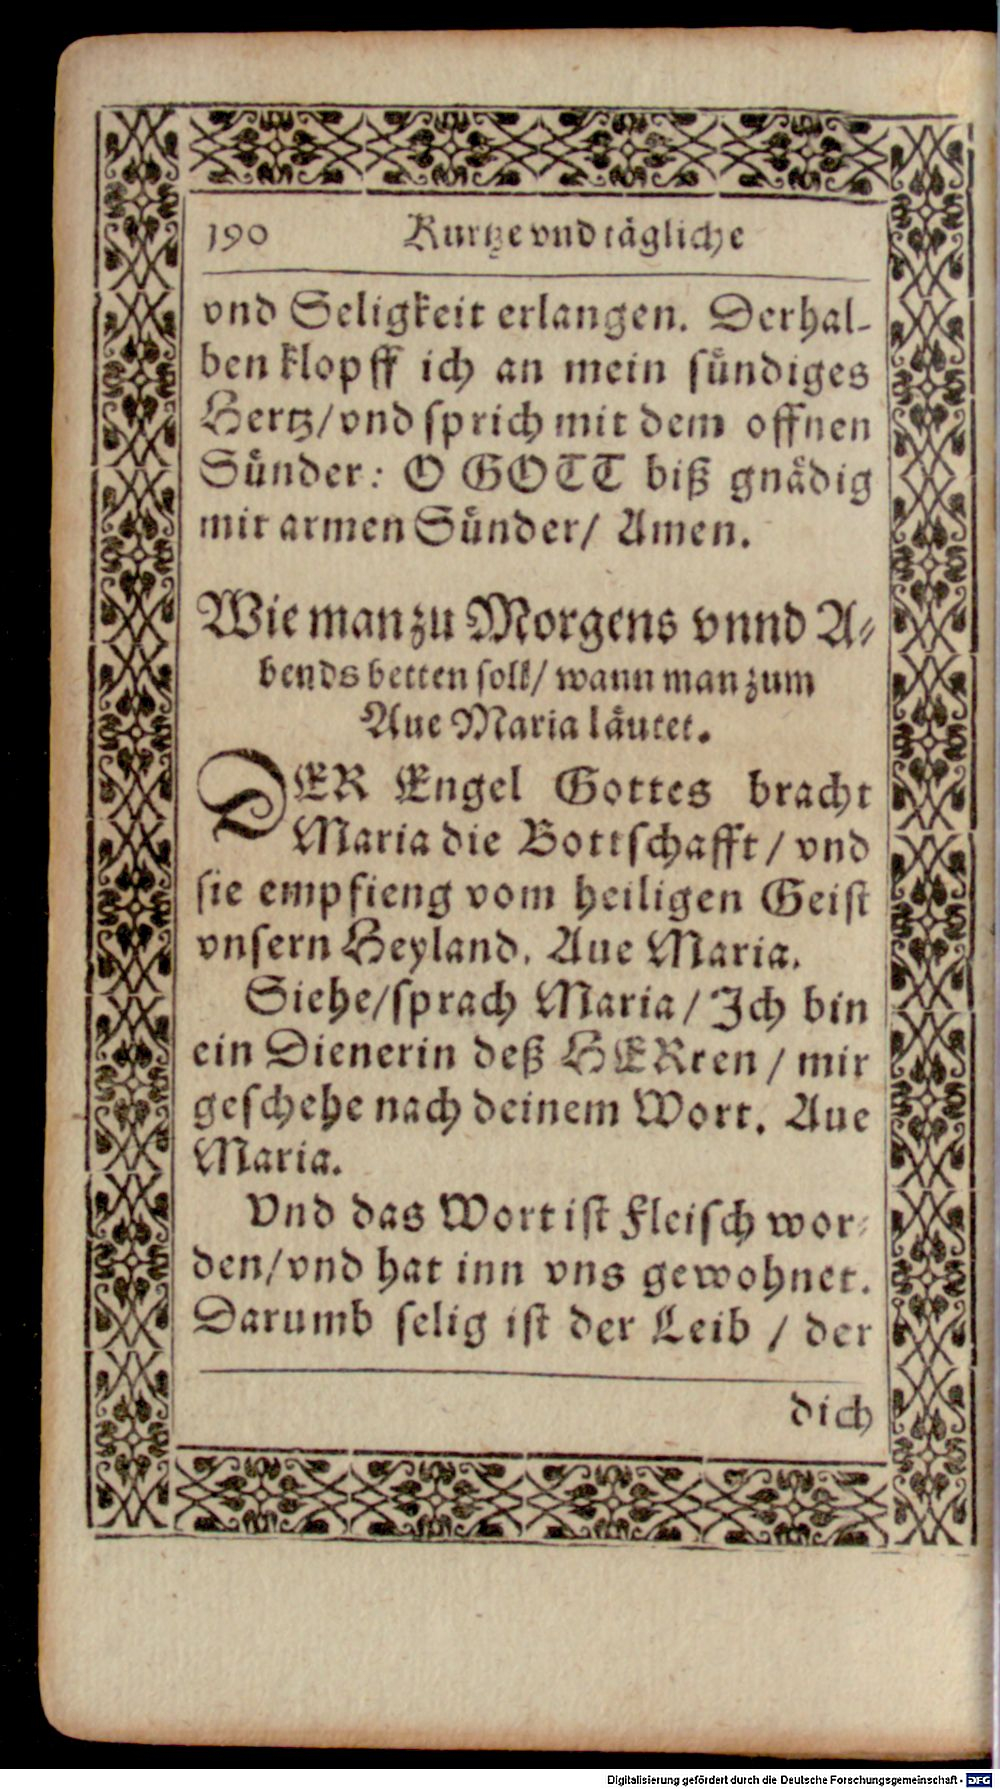 190 Kurtze vnd tägliche
vnd Seligkeit erlangen. Derhal-
ben klopff ich an mein sündiges
Hertz/vnd sprich mit dem offnen
Sünder: O GOTT biß gnädig
mir armen Sünder/ Amen.
Wie man zu Morgens vnnd A-
bends betten soll/ wann man zum
Aue Maria läutet.
DER Engel Gottes bracht
Maria die Bottschafft / vnd
sie empfieng vom heiligen Geist
vnsern Heyland. Aue Maria.
Siehe/sprach Maria/ Ich bin
ein Dienerin deß HERren / mir
geschehe nach deinem Wort. Aue
Maria.
Vnd das Wort ist Fleisch wor-
den/vnd hat inn vns gewohnet.
Darumb selig ist der Leib / der
dich
Digitalisierung gefördert durch die Deutsche Forschungsgemeinschaft - DFG